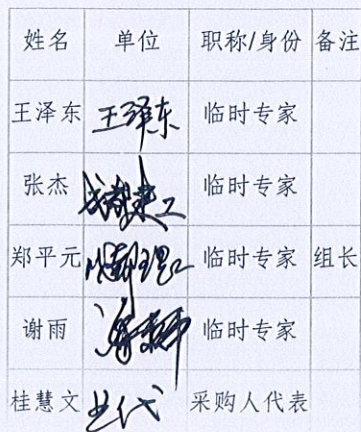 姓名 单位 职称/身份 备注
王泽东 王泽东 临时专家
张杰 成都建工 临时专家
郑平元 临时专家 组长
谢雨 临时专家
桂慧文 业代 采购人代表